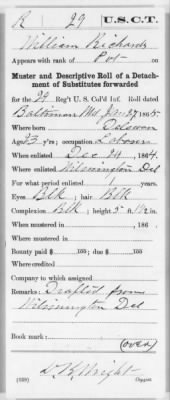 R | 29 | U.S.C.T.
William Richards
Appears with rank of Pvt on
Muster and Descriptive Roll of a Detach-
ment of Substitutes forwarded
for the 29 Reg't U. S. Col'd Inf. Roll dated
Baltimore Md Jan 27, 1865.
Where born Delaware
Age 23 y'rs; occupation Laborer
When enlisted Dec 24, 1864.
Where enlisted Wilmington Del
For what period enlisted 1 years.
Eyes Blk; hair Blk
Complexion Blk; height 5 ft. in.
When mustered in , 186 .
Where mustered in
Bounty paid $ 100; due $ 100
Where credited
Company to which assigned
Remarks: Drafted from
Wilmington Del
Book mark:
(over)
Wright
(339) Copyist.